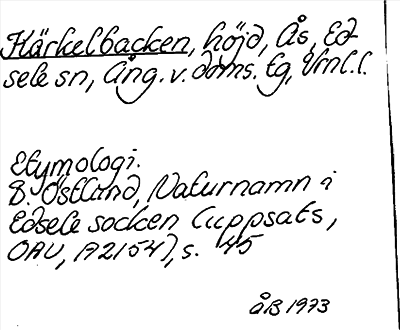 Härkelbacken, höjd, Ås, Ed-
sele sn, Ång. v. doms. tg, Vnl. l.
Etymologi.
B. Östlund, Naturnamn i
Edsele socken (uppsats,
OAU, A2154), s. 45
åB 1973